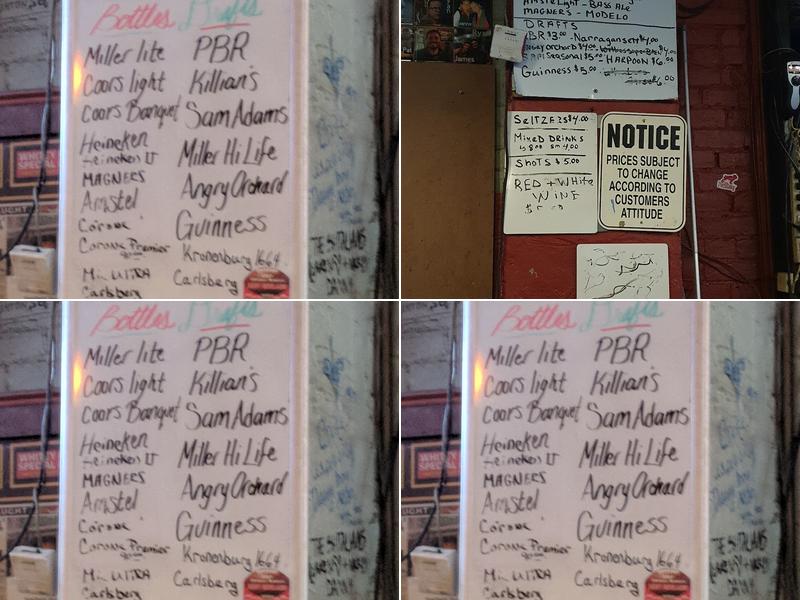 Bottles Drafts
Miller lite PBR
Coors light Killian's
Coors Banquet Sam Adams
Heineken Miller Hi Life
Heineken
MAGNERS Angry Orchard
Amstel
Corona Guinness
Corona Premier Kronenburg 1664
Mic ULTRA Carlsberg
Carlsberg
WHITEY
SPECIAL
Amstel Light - BASS Ale
MAGNERS - MODELO
DRAFTS
PBR $3.00 - Narragansett $4.00
Angry orchard $4.00
SAM Seasonal $5.00 HARPOON $6.00
Guinness $5.00
James
SelTZERS $4.00
MIXED DRINKS
SHOTS $5.00
RED + WHITE
WINE
NOTICE
PRICES SUBJECT
TO CHANGE
ACCORDING TO
CUSTOMERS
ATTITUDE
Bottles Drafts
Miller lite PBR
Coors light Killian's
Coors Banquet Sam Adams
Heineken Miller Hi Life
Heineken
MAGNERS Angry Orchard
Amstel
Corona Guinness
Corona Premier Kronenburg 1664
Mic ULTRA Carlsberg
Carlsberg
WHITEY
SPECIAL
Bottles Drafts
Miller lite PBR
Coors light Killian's
Coors Banquet Sam Adams
Heineken Miller Hi Life
Heineken
MAGNERS Angry Orchard
Amstel
Corona Guinness
Corona Premier Kronenburg 1664
Mic ULTRA Carlsberg
Carlsberg
WHITEY
SPECIAL